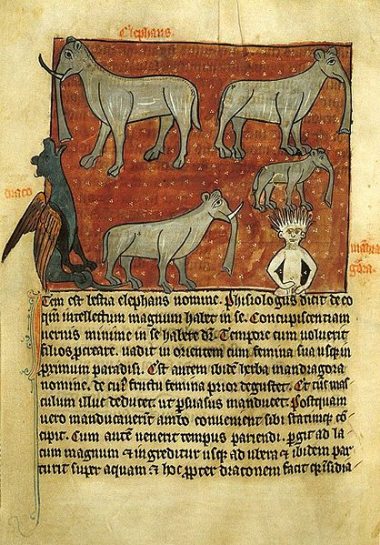 Elephans
draco
mãdra
gora
Item est bestia elephans nomine. Phisiologus dicit de eo
qđ intellectum magnum habet in se. Concupiscentiam
minime in se habere dr̄. Tempore cum uoluerit
filios pcreare. uadit in orientem cum femina sua usq; in
primum paradisi. Est autem ibidē herba mandragora
nomine. de cuiꝰ fructu femina prior degustet. Et sic mas
culum illuc deducet ut psuasus manducet. Postquam
uero manducauerint ambo conuenient sibi statimq; cō
cipit. Cum autē uenerit tempus pariendi. pgit ad la
cum magnum & ingreditur usq; ad ubera & ibidem par
turit super aquam & hoc ppter draconem facit q̄ insidia